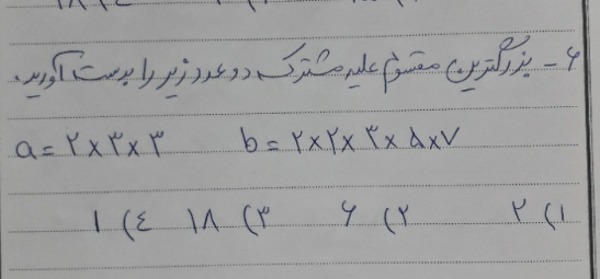 ۶ - بزرگترین مقسوم علیه مشترک دو عدد زیر را بدست آورید.
a = ۲×۳×۳ b = ۲×۲×۳×۵×۷
۱) ۲ ۲) ۶ ۳) ۱۸ ٤) ۱